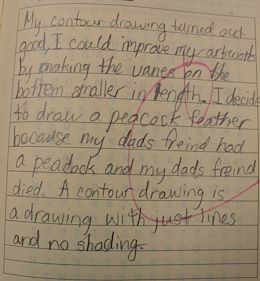 My contour drawing turned out
good, I could improve my artwork
by making the vanes on the
bottem smaller in length. I decide
to draw a peacock feather
because my dads freind had
a peadock and my dads freind
died. A contour drawing is
a drawing with just lines
and no shading.